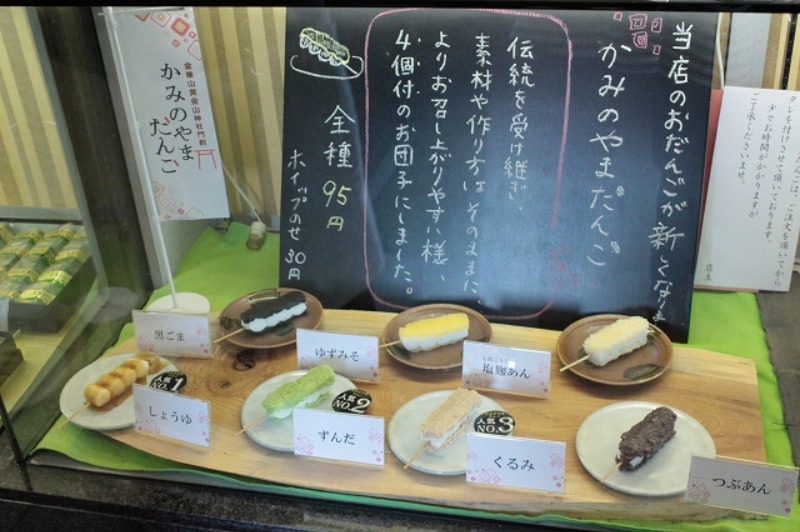 当店のおだんごが新しくなりま
かみのやまだんご
伝統を受け継ぎ
素材や作り方はそのままに、
よりお召し上がりやすい様
4個付のお団子にしました。
全種 95円
ホイップのせ 30円
金華山黄金山神社門前
かみのやま
だんご
だんごは、ご注文を頂いてから
タレを付けさせて頂いております。
少々お時間がかかりますが
ご了承くださいませ。
店主
黒ごま
ゆずみそ
塩麹あん
人気
NO.1
しょうゆ
人気
NO.2
ずんだ
人気
NO.3
くるみ
つぶあん